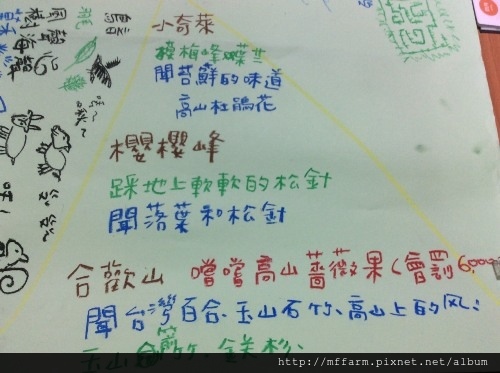 小奇萊
摸梅峰蝶兰
聞苔蘚的味道
高山杜鵑花
櫻櫻峰
踩地上軟軟的松針
聞落葉和松針
合歡山 嚐嚐高山薔薇果(會罰6,000
聞台灣百合、玉山石竹、高山上的风、
玉山箭竹、鐵杉、
鳥語
http://mffarm.pixnet.net/album